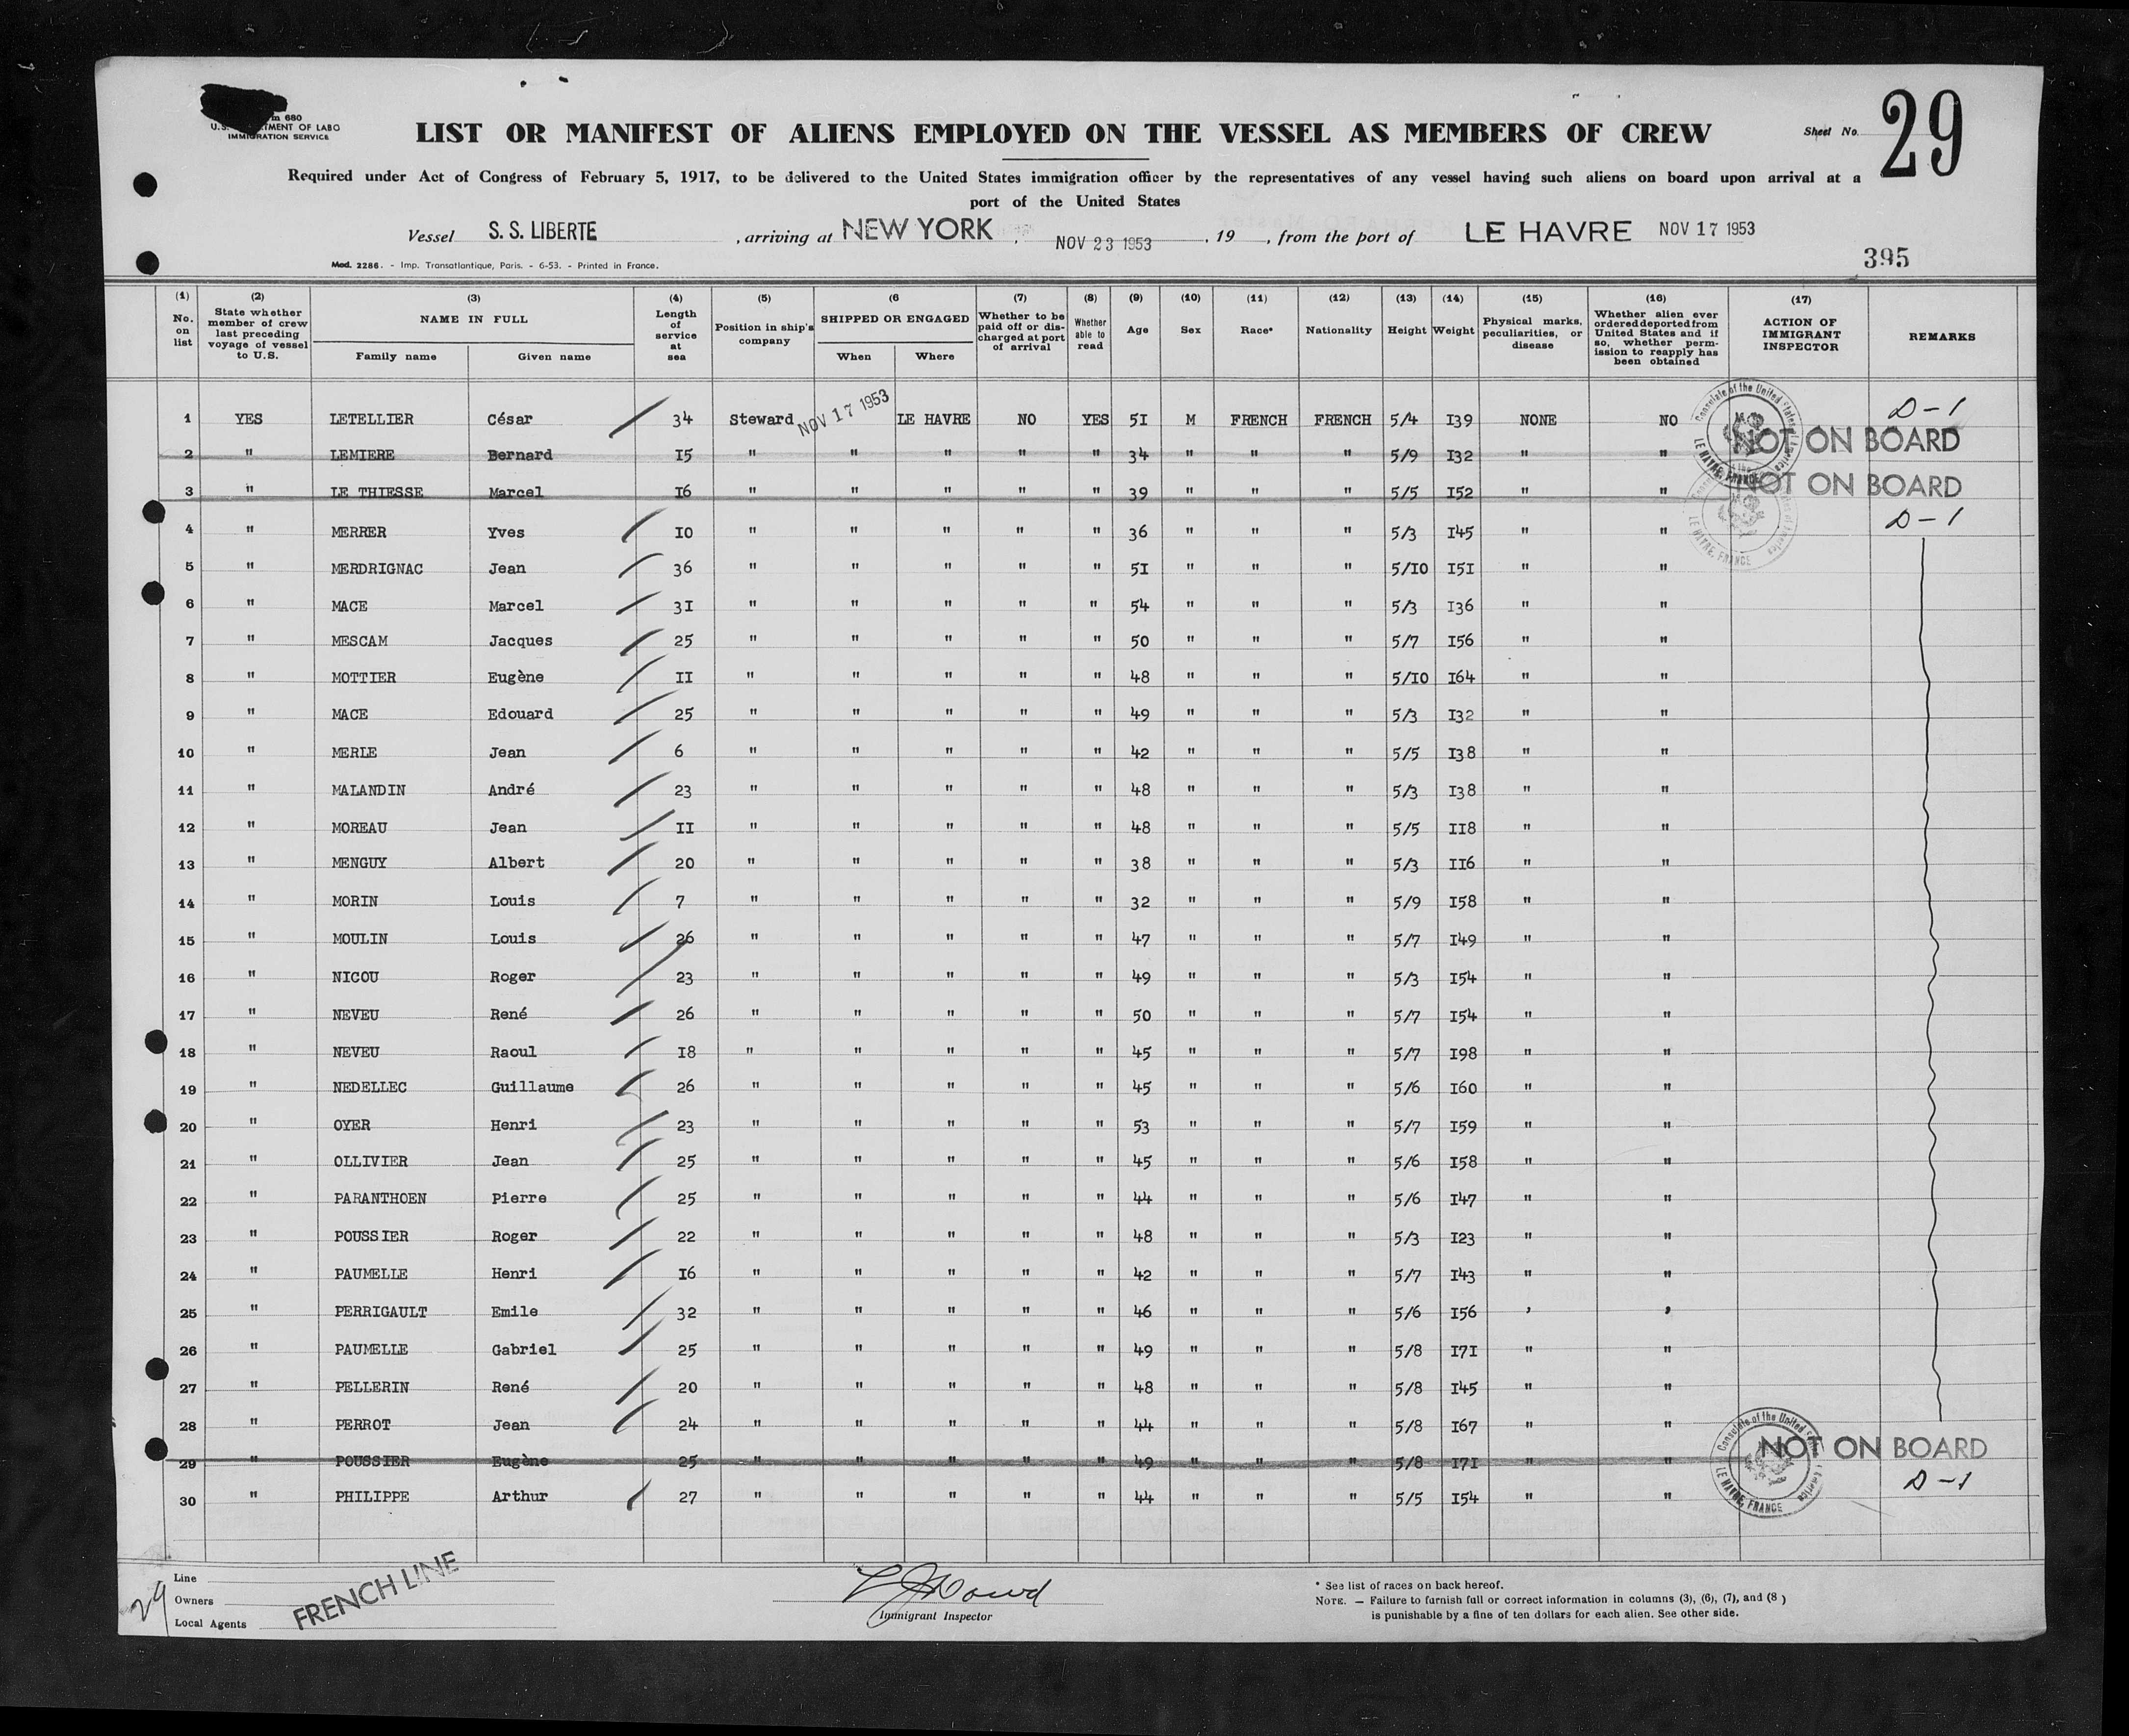 m 680
U.S. TMENT OF LABO
IMMIGRATION SERVICE
LIST OR MANIFEST OF ALIENS EMPLOYED ON THE VESSEL AS MEMBERS OF CREW
Sheet No. 29
Required under Act of Congress of February 5, 1917, to be delivered to the United States immigration officer by the representatives of any vessel having such aliens on board upon arrival at a
port of the United States
Vessel S. S. LIBERTE , arriving at NEW YORK , NOV 23 1953 , 19 , from the port of LE HAVRE NOV 17 1953
Mod. 2286. - Imp. Transatlantique, Paris. - 6-53. - Printed in France.
395
(1) No. on list (2) State whether member of crew last preceding voyage of vessel to U.S. (3) NAME IN FULL Family name Given name (4) Length of service at sea (5) Position in ship's company (6 SHIPPED OR ENGAGED When Where (7) Whether to be paid off or discharged at port of arrival (8) Whether able to read (9) Age (10) Sex (11) Race* (12) Nationality (13) Height (14) Weight (15) Physical marks, peculiarities, or disease (16) Whether alien ever ordered deported from United States and if so, whether permission to reapply has been obtained (17) ACTION OF IMMIGRANT INSPECTOR REMARKS
1 YES LETELLIER César 34 Steward NOV 17 1953 LE HAVRE NO YES 51 M FRENCH FRENCH 5/4 139 NONE NO D-1
2 " LEMIERE Bernard 15 " " " " " 34 " " " 5/9 132 " " NOT ON BOARD
3 " LE THIESSE Marcel 16 " " " " " 39 " " " 5/5 152 " " NOT ON BOARD
4 " MERRER Yves 10 " " " " " 36 " " " 5/3 145 " " D-1
5 " MERDRIGNAC Jean 36 " " " " " 51 " " " 5/10 151 " "
6 " MACE Marcel 31 " " " " " 54 " " " 5/3 136 " "
7 " MESCAM Jacques 25 " " " " " 50 " " " 5/7 156 " "
8 " MOTTIER Eugène 11 " " " " " 48 " " " 5/10 164 " "
9 " MACE Edouard 25 " " " " " 49 " " " 5/3 132 " "
10 " MERLE Jean 6 " " " " " 42 " " " 5/5 138 " "
11 " MALANDIN André 23 " " " " " 48 " " " 5/3 138 " "
12 " MOREAU Jean 11 " " " " " 48 " " " 5/5 118 " "
13 " MENGUY Albert 20 " " " " " 38 " " " 5/3 116 " "
14 " MORIN Louis 7 " " " " " 32 " " " 5/9 158 " "
15 " MOULIN Louis 26 " " " " " 47 " " " 5/7 149 " "
16 " NICOU Roger 23 " " " " " 49 " " " 5/3 154 " "
17 " NEVEU René 26 " " " " " 50 " " " 5/7 154 " "
18 " NEVEU Raoul 18 " " " " " 45 " " " 5/7 198 " "
19 " NEDELLEC Guillaume 26 " " " " " 45 " " " 5/6 160 " "
20 " OYER Henri 23 " " " " " 53 " " " 5/7 159 " "
21 " OLLIVIER Jean 25 " " " " " 45 " " " 5/6 158 " "
22 " PARANTHOEN Pierre 25 " " " " " 44 " " " 5/6 147 " "
23 " POUSSIER Roger 22 " " " " " 48 " " " 5/3 123 " "
24 " PAUMELLE Henri 16 " " " " " 42 " " " 5/7 143 " "
25 " PERRIGAULT Emile 32 " " " " " 46 " " " 5/6 156 ' '
26 " PAUMELLE Gabriel 25 " " " " " 49 " " " 5/8 171 " "
27 " PELLERIN René 20 " " " " " 48 " " " 5/8 145 " "
28 " PERROT Jean 24 " " " " " 44 " " " 5/8 167 " "
29 " POUSSIER Eugène 25 " " " " " 49 " " " 5/8 171 " " NOT ON BOARD
30 " PHILIPPE Arthur 27 " " " " " 44 " " " 5/5 154 " " D-1
Consulate of the United States of America
LE HAVRE, FRANCE
LE HAVRE, FRANCE
Consulate of the United America
LE HAVRE, FRANCE
29
Line
Owners
Local Agents
FRENCH LINE
Immigrant Inspector
* See list of races on back hereof.
NOTE. — Failure to furnish full or correct information in columns (3), (6), (7), and (8 )
is punishable by a fine of ten dollars for each alien. See other side.